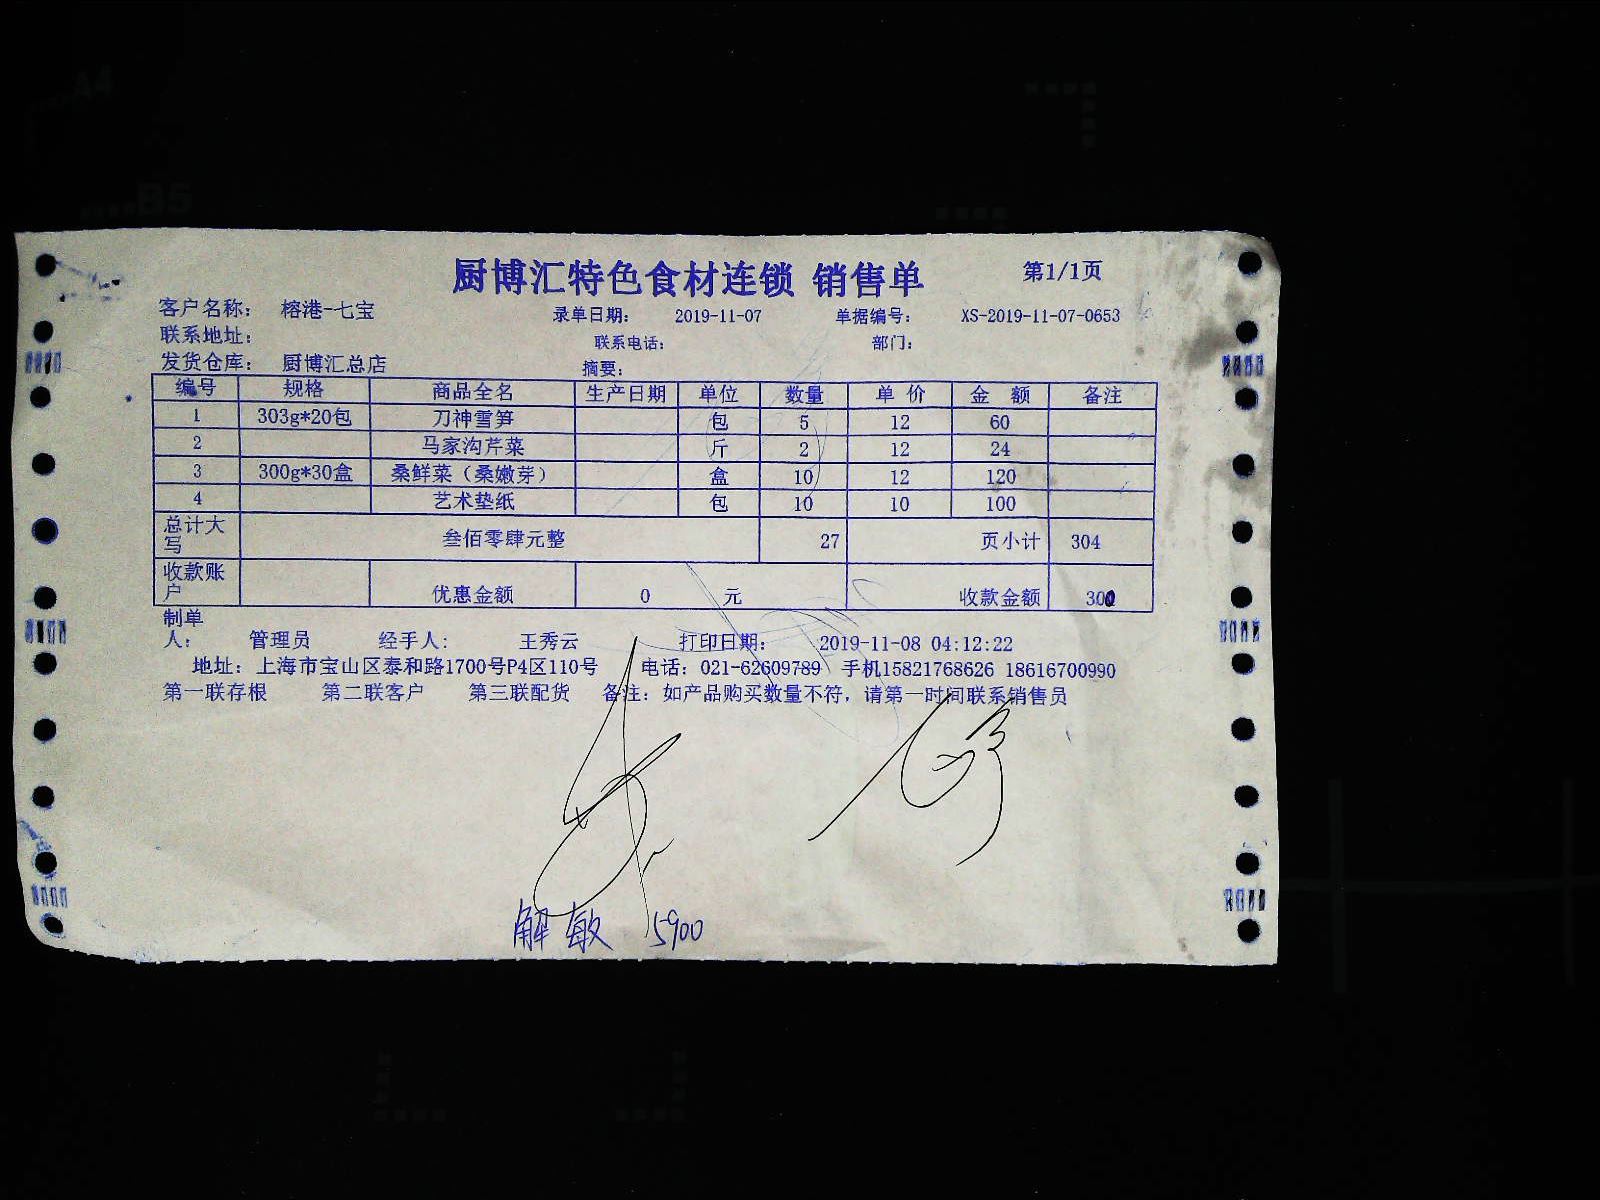 厨博汇特色食材连锁 销售单 第1/1页
客户名称： 榕港-七宝 录单日期： 2019-11-07 单据编号： XS-2019-11-07-0653
联系地址： 联系电话： 部门：
发货仓库： 厨博汇总店 摘要：
编号 规格 商品全名 生产日期 单位 数量 单 价 金 额 备注
1 303g*20包 刀神雪笋 包 5 12 60
2 马家沟芹菜 斤 2 12 24
3 300g*30盒 桑鲜菜（桑嫩芽） 盒 10 12 120
4 艺术垫纸 包 10 10 100
总计大写 叁佰零肆元整 27 页小计 304
收款账户 优惠金额 0 元 收款金额
制单人： 管理员 经手人： 王秀云 打印日期： 2019-11-08 04:12:22
地址：上海市宝山区泰和路1700号P4区110号 电话：021-62609789 手机15821768626 18616700990
第一联存根 第二联客户 第三联配货 备注：如产品购买数量不符，请第一时间联系销售员
解敏 5900
A4
B5